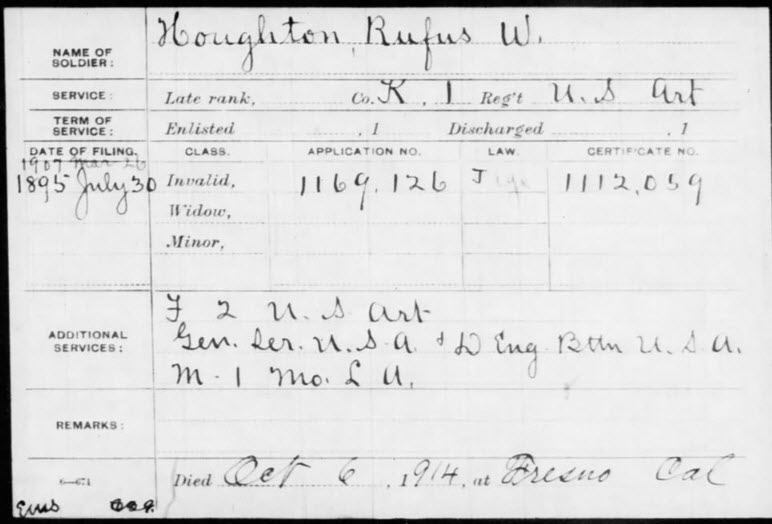 NAME OF SOLDIER: Houghton, Rufus W.
SERVICE: Late rank, Co. K, 1 Reg't U. S Art
TERM OF SERVICE: Enlisted , 1 Discharged , 1
DATE OF FILING. CLASS. APPLICATION NO. LAW. CERTIFICATE NO.
1907 Mar 26
1895 July 30 Invalid, 1169,126 J 1112,059
Widow,
Minor,
ADDITIONAL SERVICES:
F 2 U. S Art
Gen. Ser. U. S. A. & D Eng. Bttn U. S. A.
M - 1 Mo. L A.
REMARKS:
6—671 Died Oct 6, 1914, at Fresno Cal